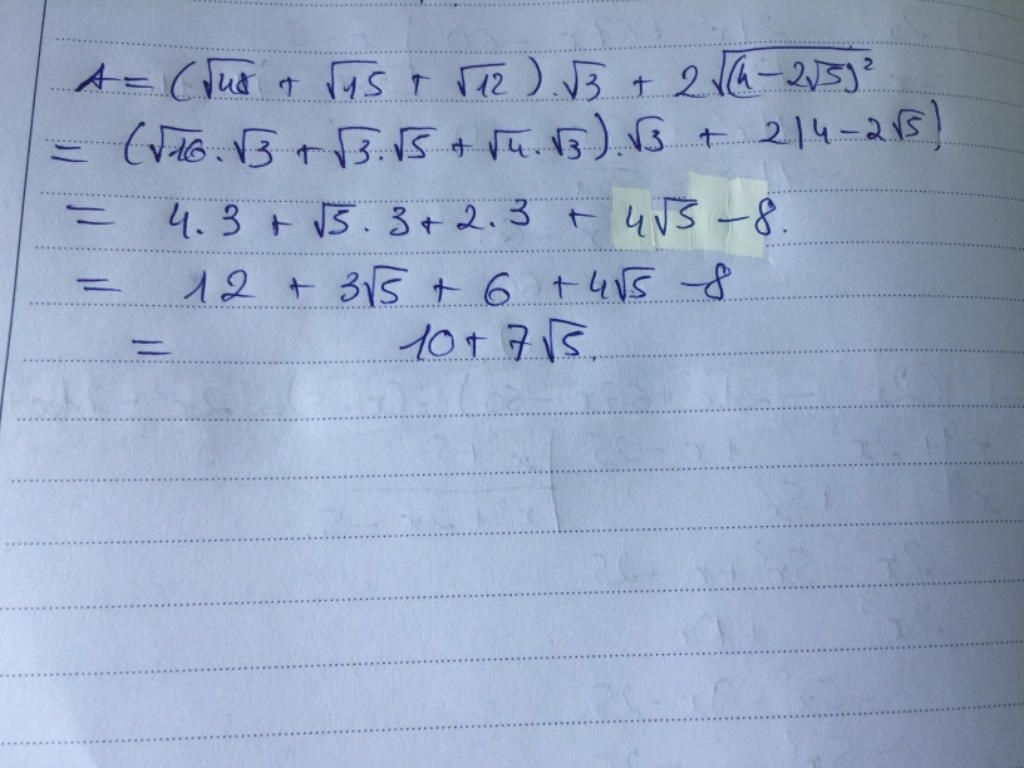 A = (√48 + √15 + √12).√3 + 2√(4 - 2√5)²
= (√16.√3 + √3.√5 + √4.√3).√3 + 2|4 - 2√5|
= 4.3 + √5.3 + 2.3 + 4√5 - 8.
= 12 + 3√5 + 6 + 4√5 - 8
= 10 + 7√5.